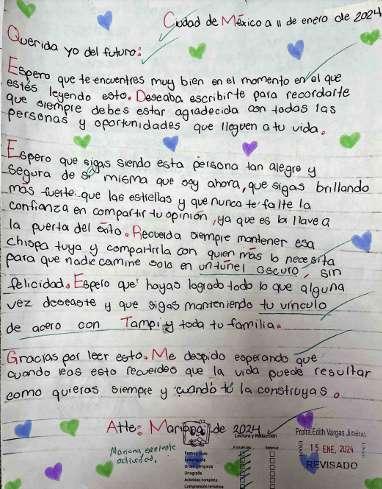 Ciudad de México a 11 de enero de 2024
Querida yo del futuro:
Espero que te encuentres muy bien en el momento en el que
estés leyendo esto. Deseaba escribirte para recordarte
que siempre debes estar agradecida con todas las
personas y oportunidades que lleguen a tu vida.
Espero que sigas siendo esta persona tan alegre y
segura de sí misma que soy ahora, que sigas brillando
más fuerte que las estrellas y que nunca te falte la
confianza en compartir tu opinión, ya que es la llave a
la puerta del éxito. Recuerda siempre mantener esa
chispa tuya y compartirla con quien más lo necesita
para que nadie camine solo en un túnel oscuro, sin
felicidad. Espero que hayas logrado todo lo que alguna
vez deseaste y que sigas manteniendo tu vínculo
de acero con Tampi y toda tu familia.
Gracias por leer esto. Me despido esperando que
cuando leas esto recuerdes que la vida puede resultar
como quieras siempre y cuando tú la construyas.
Atte: Mariana de 2024
Lectura y Redacción
Profra. Edith Vargas Jiménez
15 ENE. 2024
REVISADO
Ortografía